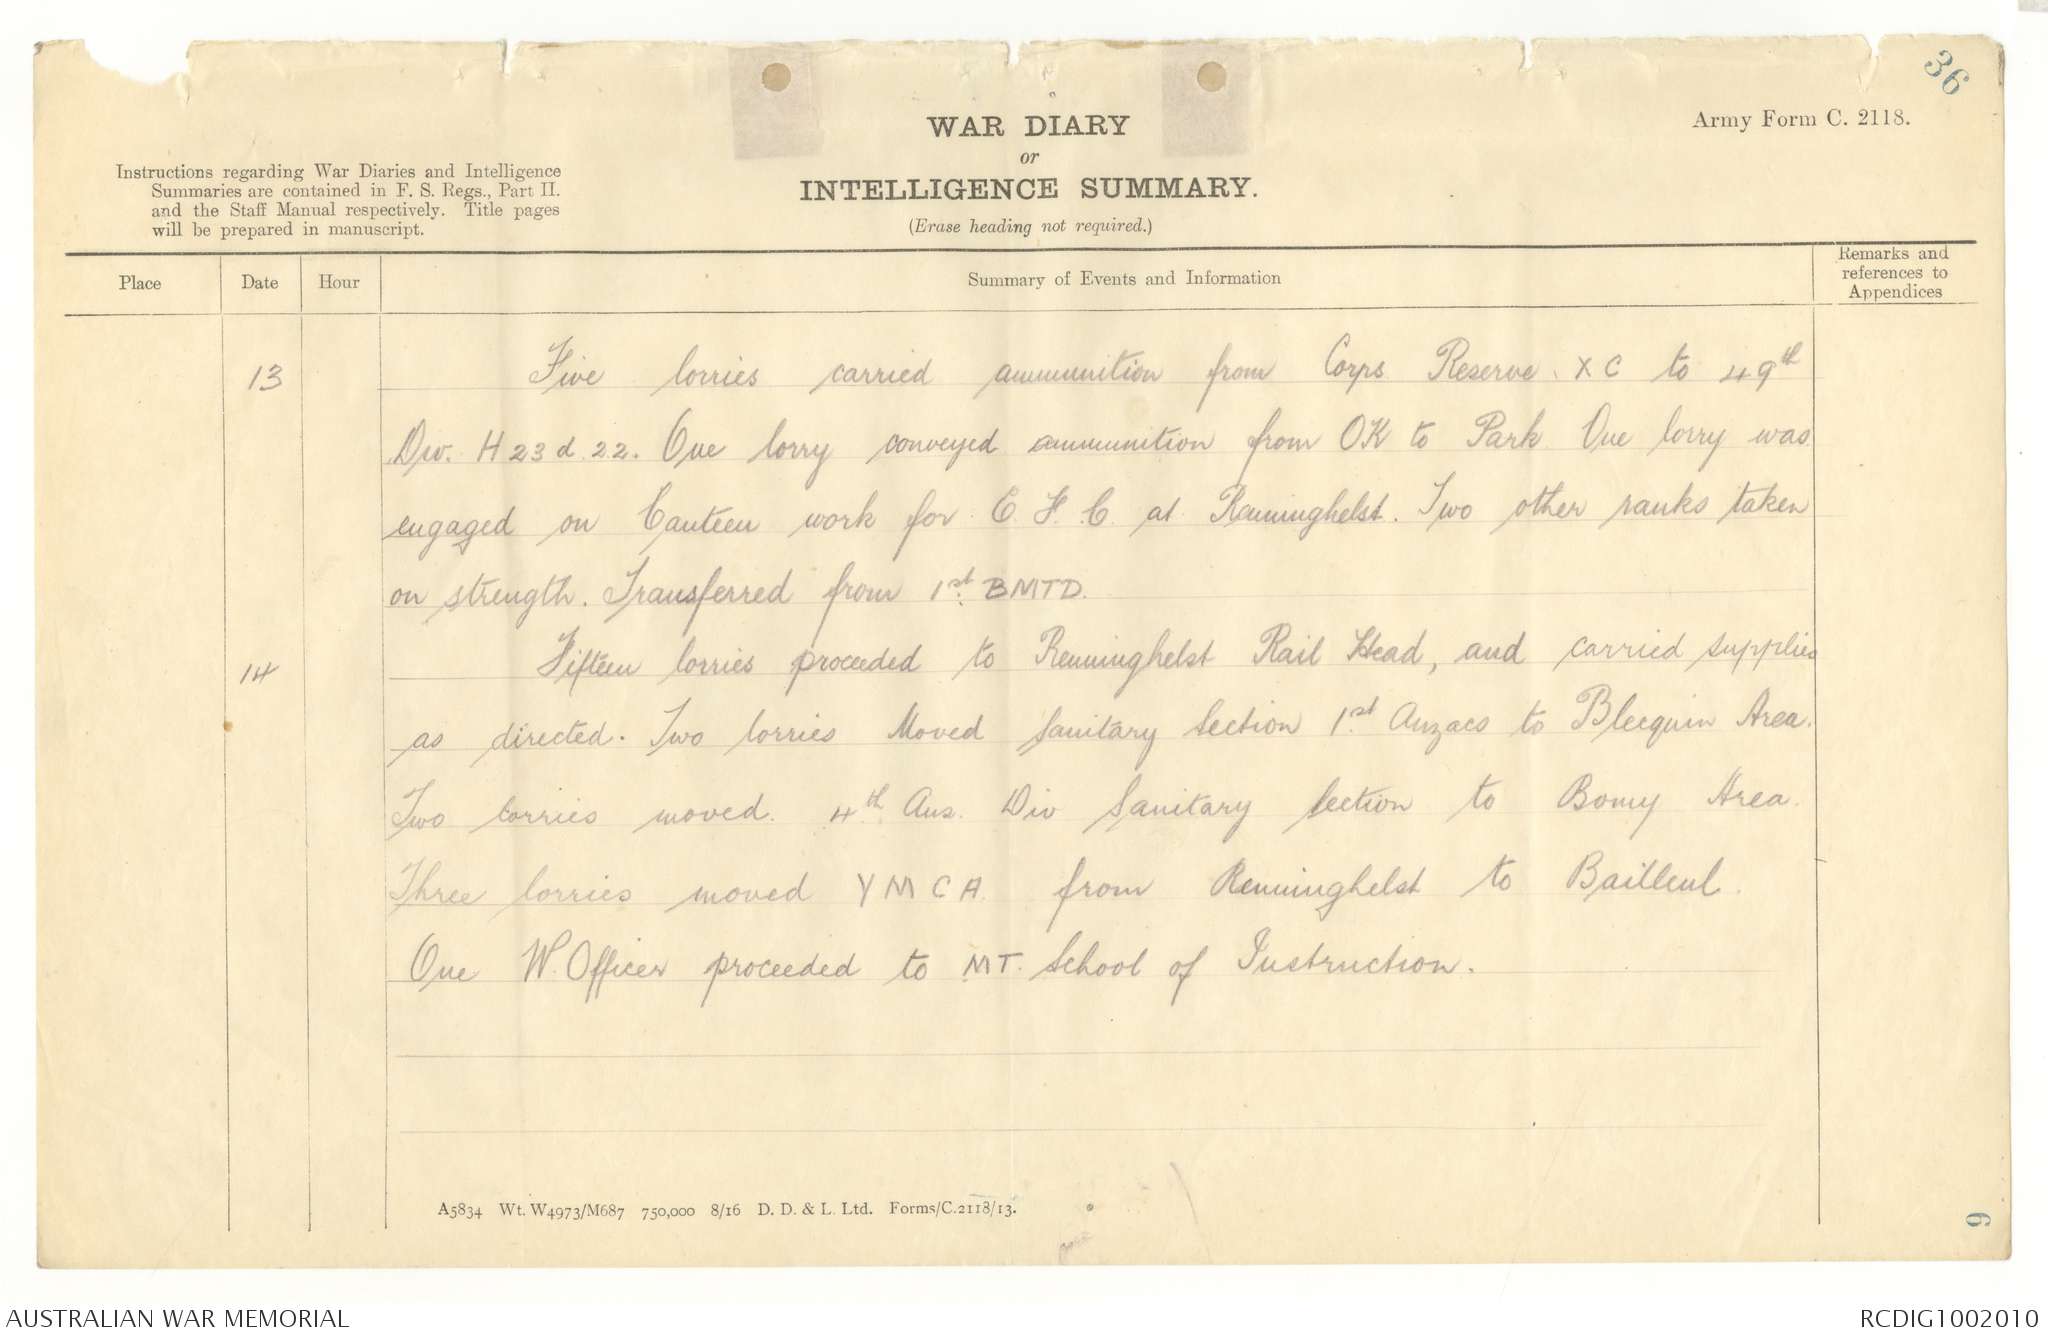 36
Army Form C. 2118.
WAR DIARY
or
INTELLIGENCE SUMMARY.
(Erase heading not required.)
Instructions regarding War Diaries and Intelligence
Summaries are contained in F. S. Regs., Part II.
and the Staff Manual respectively. Title pages
will be prepared in manuscript.
Place Date Hour Summary of Events and Information Remarks and
references to
Appendices
13 Five lorries carried ammunition from Corps Reserve. X C to 49th
Div. H 23 d 22. One lorry conveyed ammunition from OK to Park One lorry was
engaged on Canteen work for E. F. C. at Renninghelst. Two other ranks taken
on strength. Transferred from 1st. BMTD.
14 Fifteen lorries proceeded to Renninghelst Rail Head, and carried supplies
as directed. Two lorries Moved Sanitary Section 1st. Anzacs to Blecquin Area.
Two lorries moved. 4th Aus. Div Sanitary Section to Bomy Area.
Three lorries moved Y M C A. from Renninghelst to Bailleul.
One W. Officer proceeded to MT. School of Instruction.
A5834 Wt. W4973/M687 750,000 8/16 D. D. & L. Ltd. Forms/C.2118/13.
9
AUSTRALIAN WAR MEMORIAL RCDIG1002010